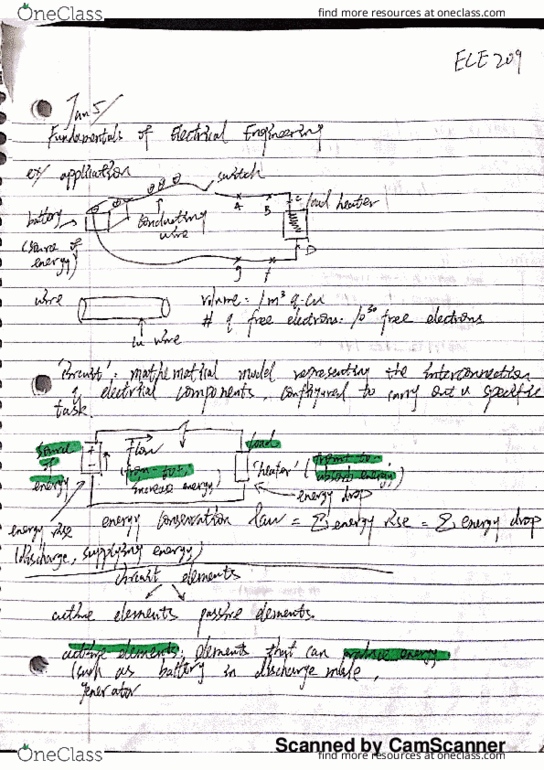 OneClass
find more resources at oneclass.com
ELE 209
Jan 5/
Fundamentals of Electrical Engineering
ex/ application
switch
battery
conducting
wire
load heater
A B
D
(source of
energy)
wire
volume: 1 m³ of cu
# of free electrons: 10³⁰ free electrons
cu wire
'Circuit': mathematical model representing the interconnection
of electrical components, configured to carry out a specific
task.
source
of
energy
flow
(from - to +,
increase energy)
load
'heater'
(from + to -
absorb energy)
energy drop
energy rise
energy conservation law = Σ energy rise = Σ energy drop
(discharge, supplying energy)
circuit elements
active elements passive elements.
active elements: elements that can produce energy
(such as battery in discharge mode,
generator
Scanned by CamScanner
OneClass
find more resources at oneclass.com